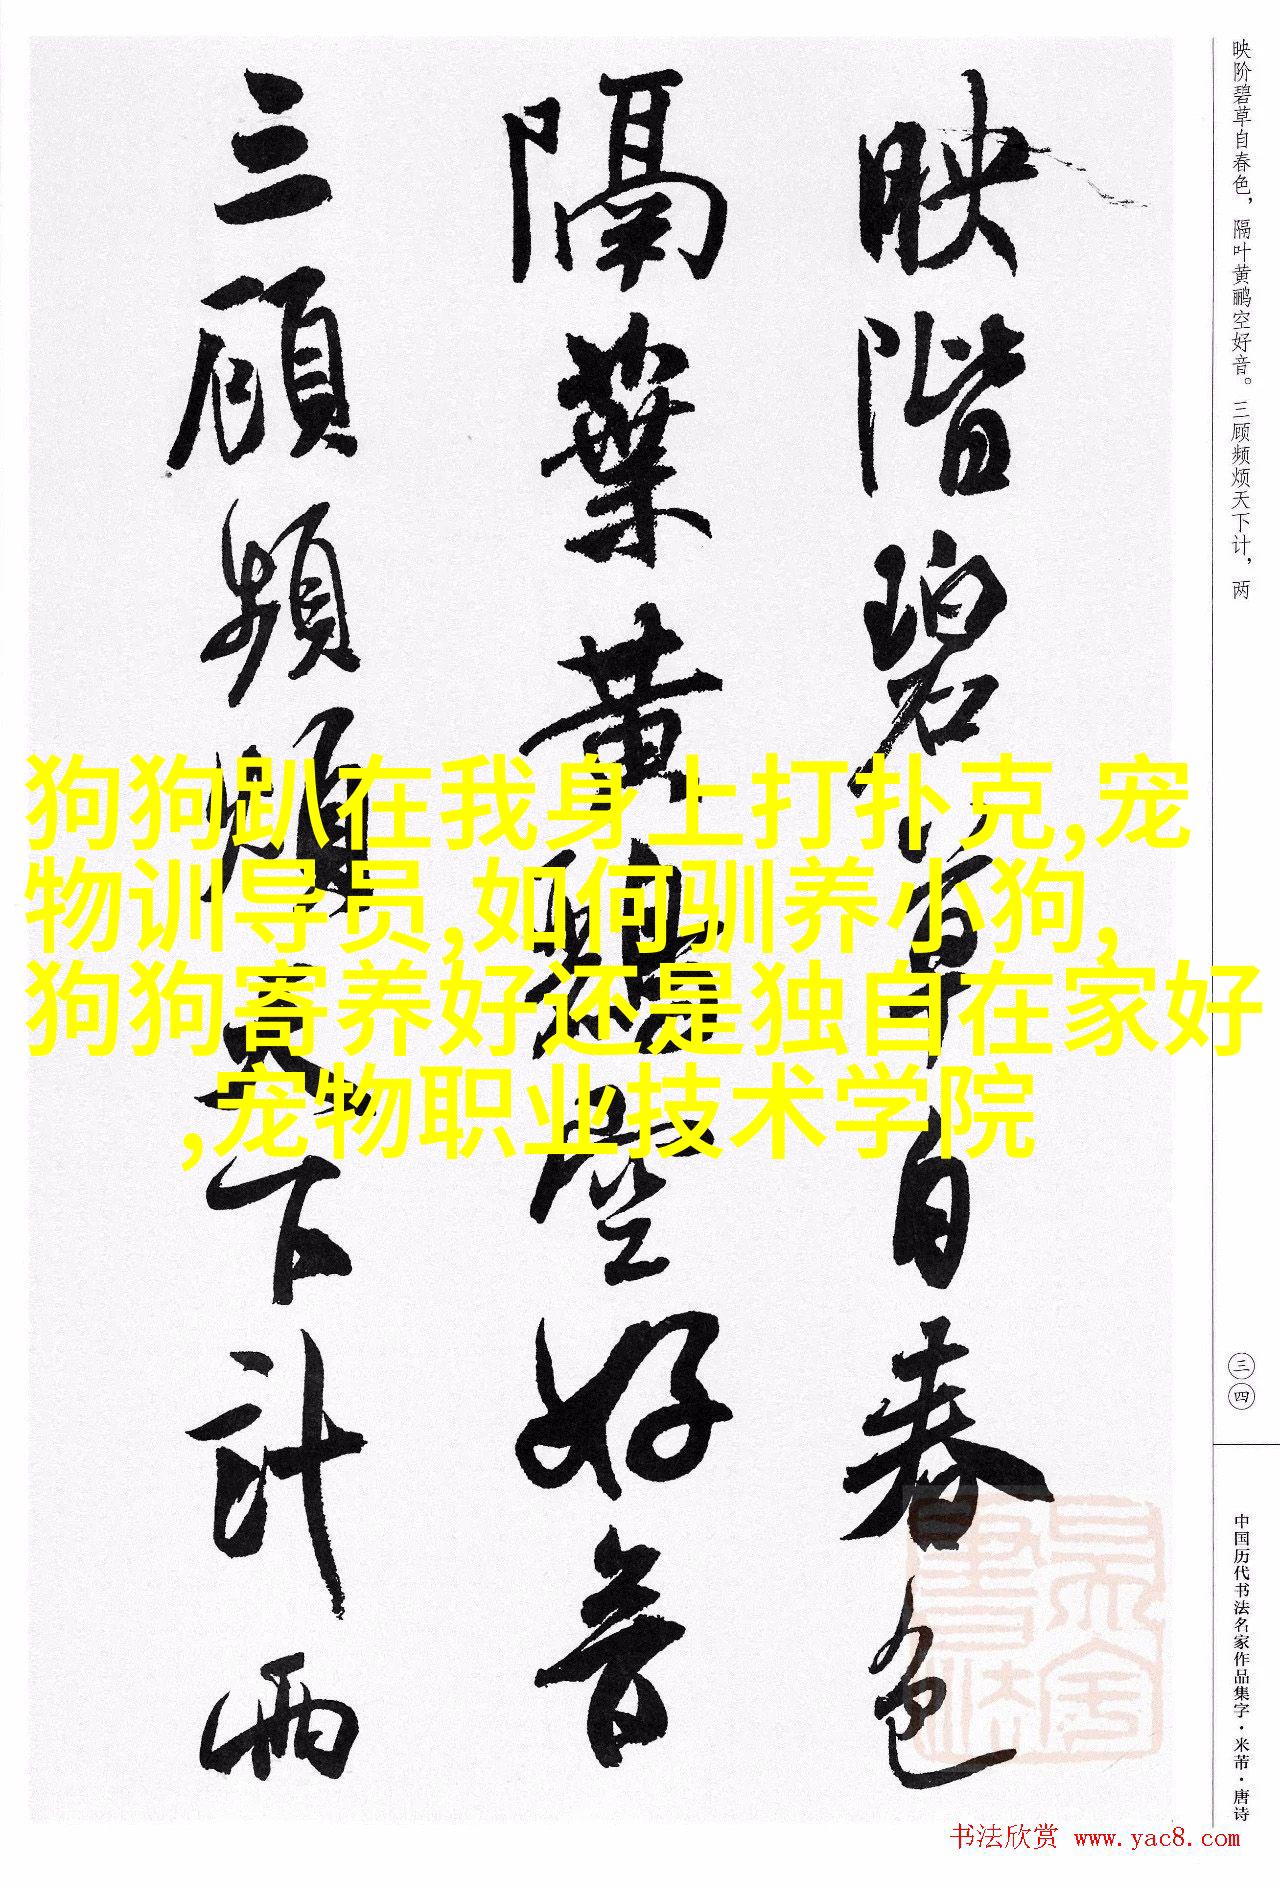 映階碧草自春色
隔葉黄鸝空好音
三顧頻煩天下計兩
映阶碧草自春色，隔叶黄鹂空好音。三顾频烦天下计，两
三四
中国历代书法名家作品集字·米芾·唐诗
狗狗趴在我身上打扑克,宠
物训导员,如何驯养小狗,
狗狗寄养好还是独自在家好
,宠物职业技术学院
书法欣赏 www.yac8.com